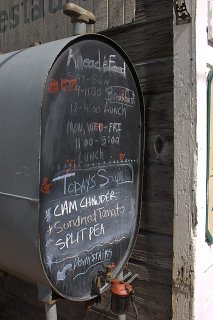 & Food
SAT-SUN
9-11:30 Breakfast
12-4:00 Lunch
MON, WED-FRI
11:00-3:00
LUNCH
TODAY'S SOUP
CLAM CHOWDER
Sundried Tomato
SPLIT PEA
Downstairs